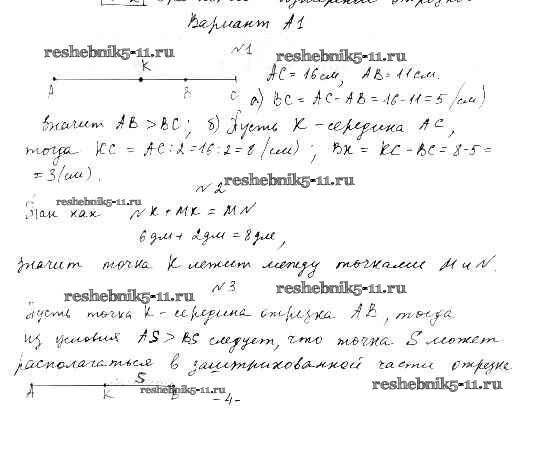 Вариант А1
reshebnik5-11.ru
№1
reshebnik5-11.ru
К
А В С
АС = 16 см, АВ = 11 см.
а) ВС = АС - АВ = 16 - 11 = 5 (см)
значит АВ > ВС; б) Пусть К - середина АС,
тогда КС = АС : 2 = 16 : 2 = 8 (см); ВК = КС - ВС = 8 - 5 =
= 3 (см).
reshebnik5-11.ru
№2
reshebnik5-11.ru
Так как NK + MK = MN
6 дм + 2 дм = 8 дм,
значит точка К лежит между точками М и N.
reshebnik5-11.ru
№3
reshebnik5-11.ru
Пусть точка К - середина отрезка АВ, тогда
из условия AS > BS следует, что точка S может
располагаться в заштрихованной части отрезка
S
А К В
reshebnik5-11.ru
reshebnik5-11.ru
-4-